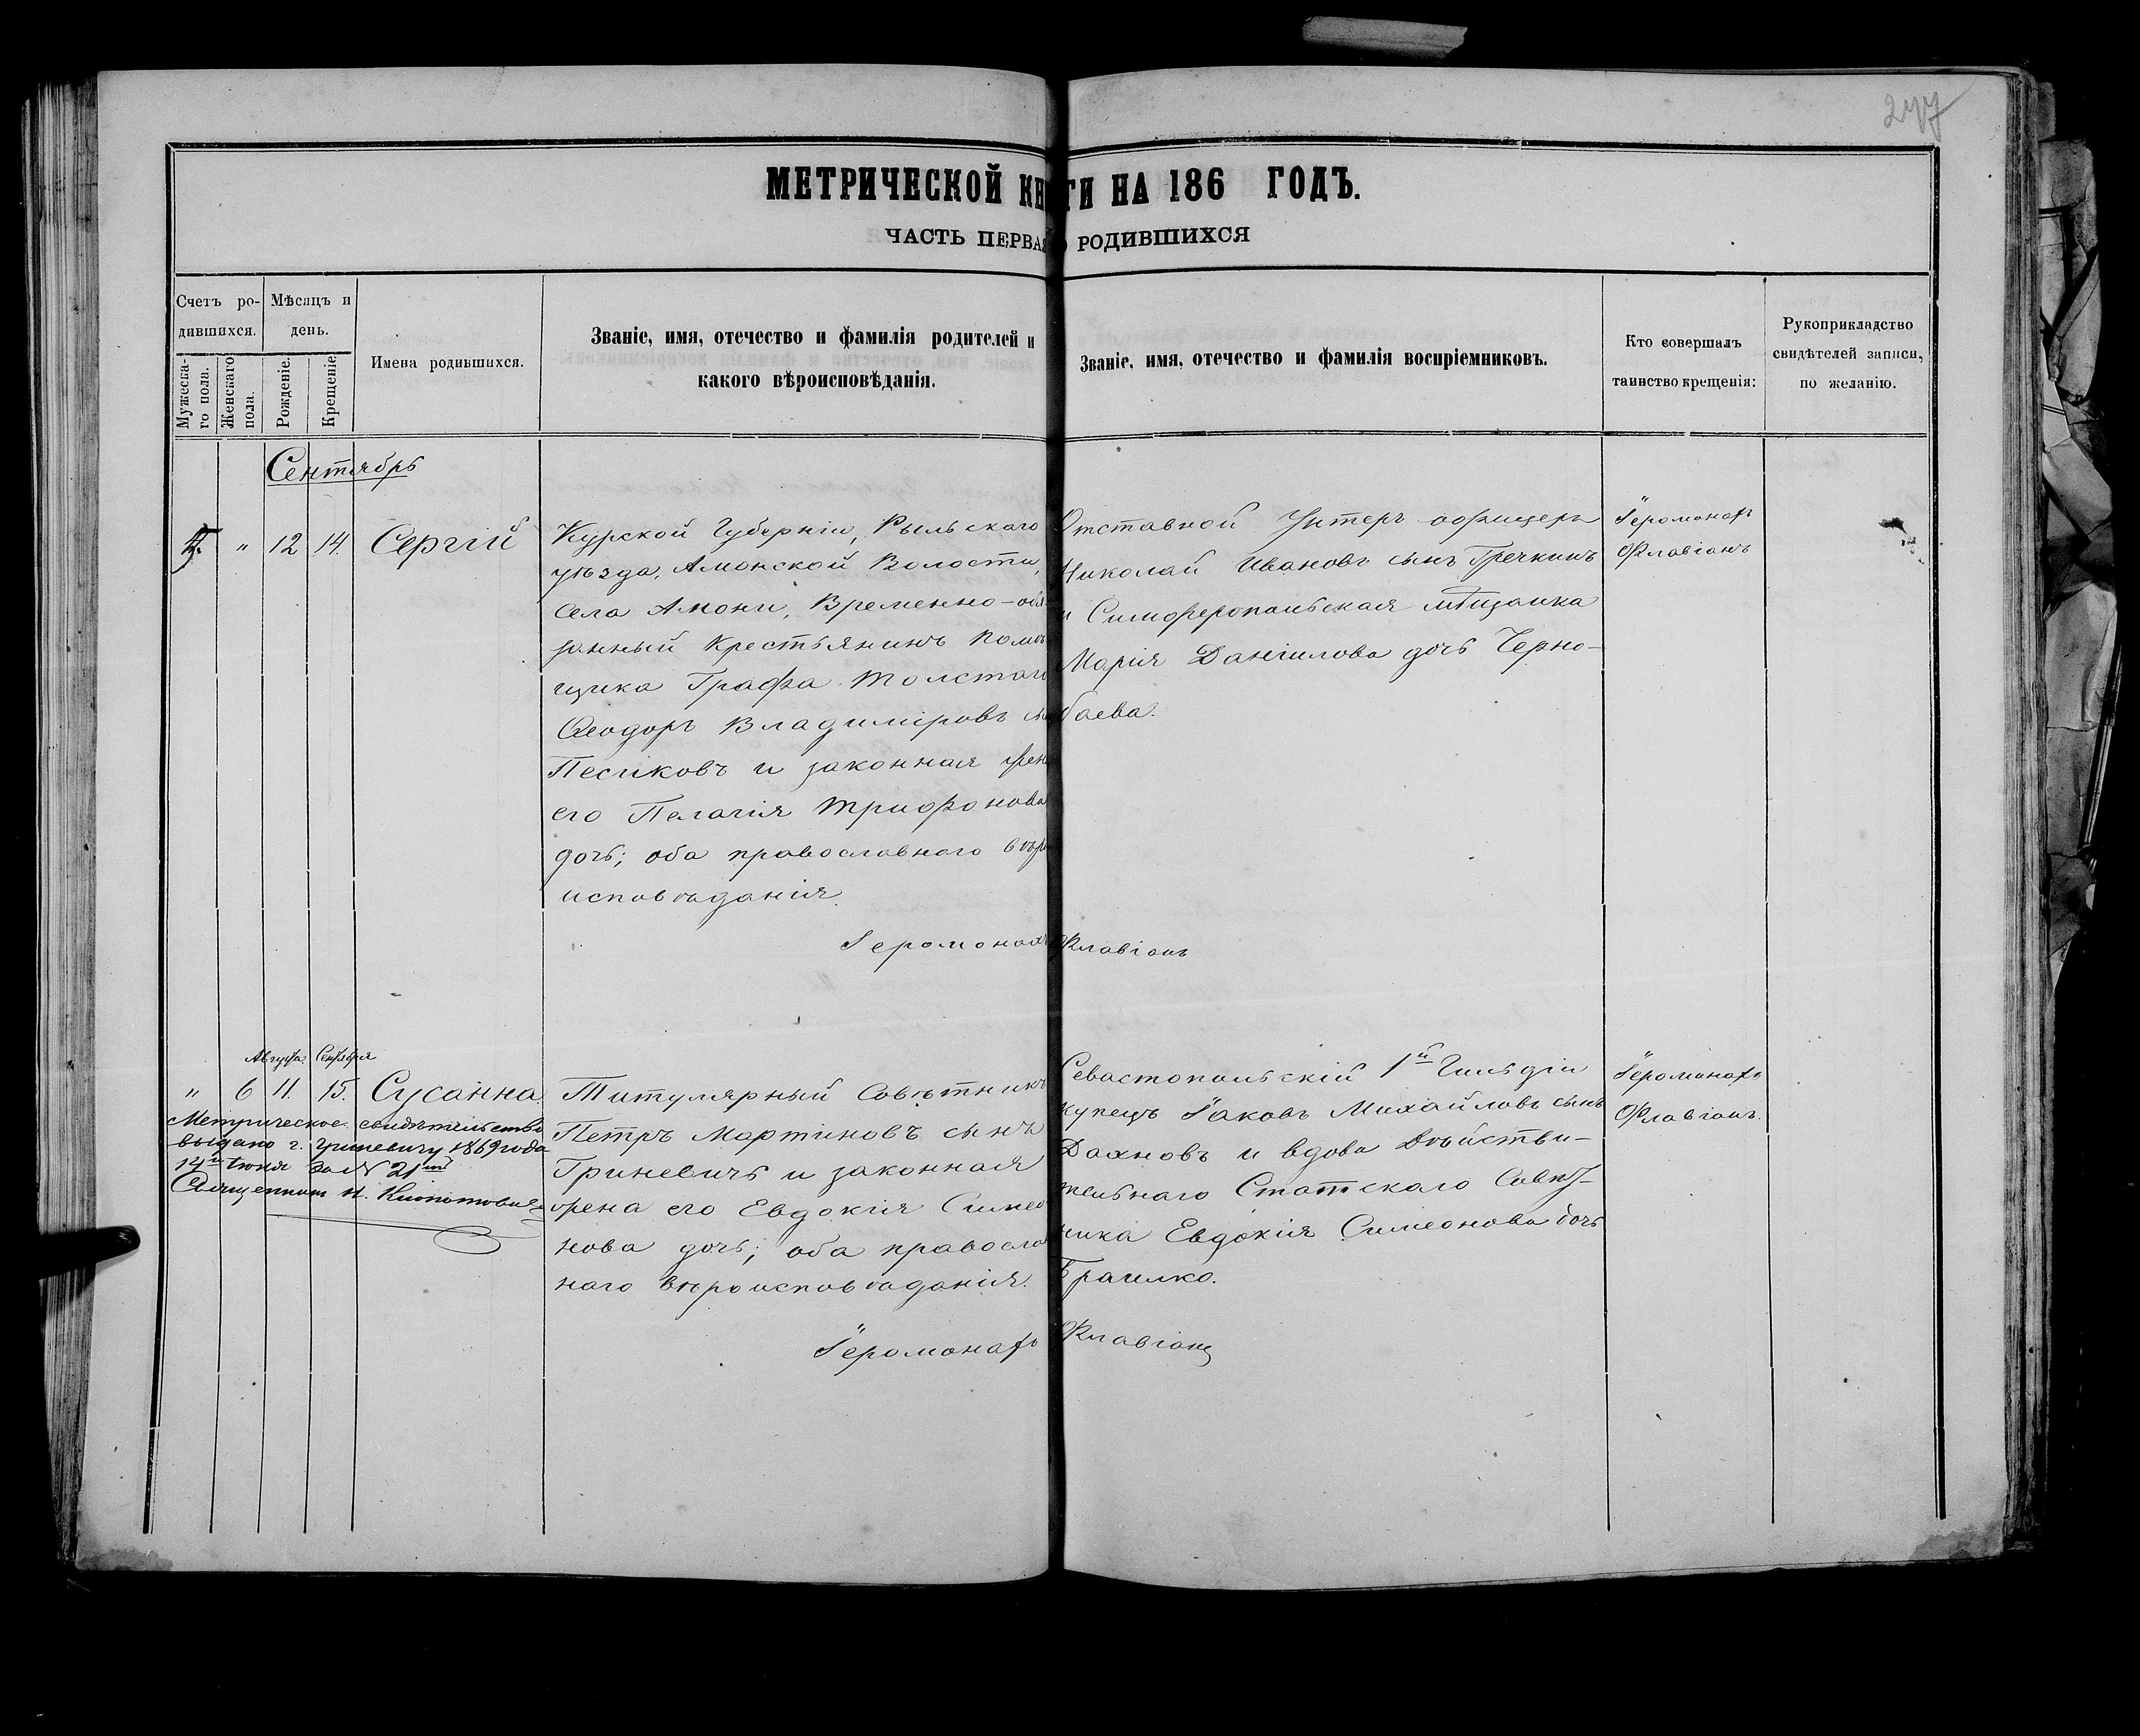 277
МЕТРИЧЕСКОЙ КНИГИ НА 186 ГОДЪ.
ЧАСТЬ ПЕРВАЯ О РОДИВШИХСЯ
Счетъ ро-
дившихся.
Мужеска-
го пола.
Женскаго
пола.
Мѣсяцъ и
день.
Рожденіе.
Крещеніе.
Имена родившихся.
Званіе, имя, отечество и фамилія родителей и
какого вѣроисповѣданія.
Званіе, имя, отечество и фамилія воспріемниковъ.
Кто совершалъ
таинство крещенія:
Рукоприкладство
свидѣтелей записи,
по желанію.
Сентябрь
" 12 14. Сергій
Курской Губерніи, Рыльскаго
уѣзда, Амонской Волости,
села Амони, Временно-обя-
занный Крестьянинъ помѣ
щика Графа Толстаго
Ѳеодоръ Владиміровъ сы
Песиковъ и законная жен
его Пелагія Трифонова
дочь; оба православнаго вѣро
исповѣданія.
Отставной Унтеръ офицеръ
Николай Ивановъ сынъ Гречкинъ
и Симферопольская мѣщанка
Марія Даніилова дочь Черно-
баева.
Іеромонахъ
Флавіанъ
Іеромонахъ Флавіанъ
Августа. Сентября
" 6 11. 15. Сусанна.
Метрическое свидѣтельство
выдано г. Гриневичу 1869 года
14го Іюня за № 21мъ
Священникъ Н.
Титулярный Совѣтникъ
Петръ Мартиновъ сынъ
Гриневичъ и законная
жена его Евдокія Симео
нова дочь; оба правосла
наго вѣроисповѣданія.
Севастопольскій 1й Гильдіи
купецъ Іаковъ Михайловъ сынъ
Дахновъ и вдова Дѣйстви-
тельнаго Статскаго Совѣт-
ника Евдокія Симеонова дочь
Браилко.
Іеромонахъ
Флавіанъ.
Іеромонахъ Флавіанъ